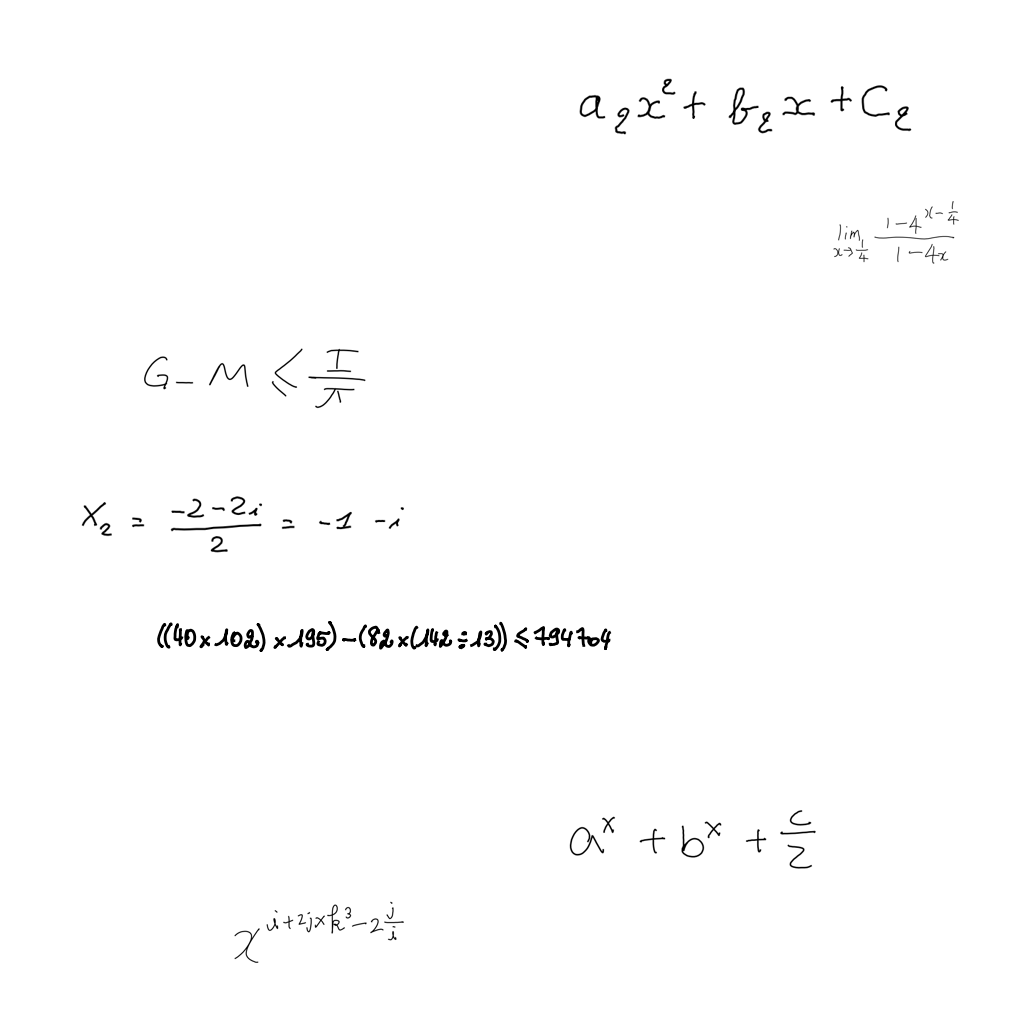 a_2x^2 + b_2x + C_2
\lim_{x \to \frac{1}{4}} \frac{1-4^{x-\frac{1}{4}}}{1-4x}
G - M \leq \frac{I}{\pi}
X_2 = \frac{-2-2i}{2} = -1 - i
((40 × 102) × 195) - (82 × (142 ÷ 13)) ≤ 794704
a^x + b^x + \frac{c}{2}
x^{i+2j×k^3-2\frac{j}{i}}